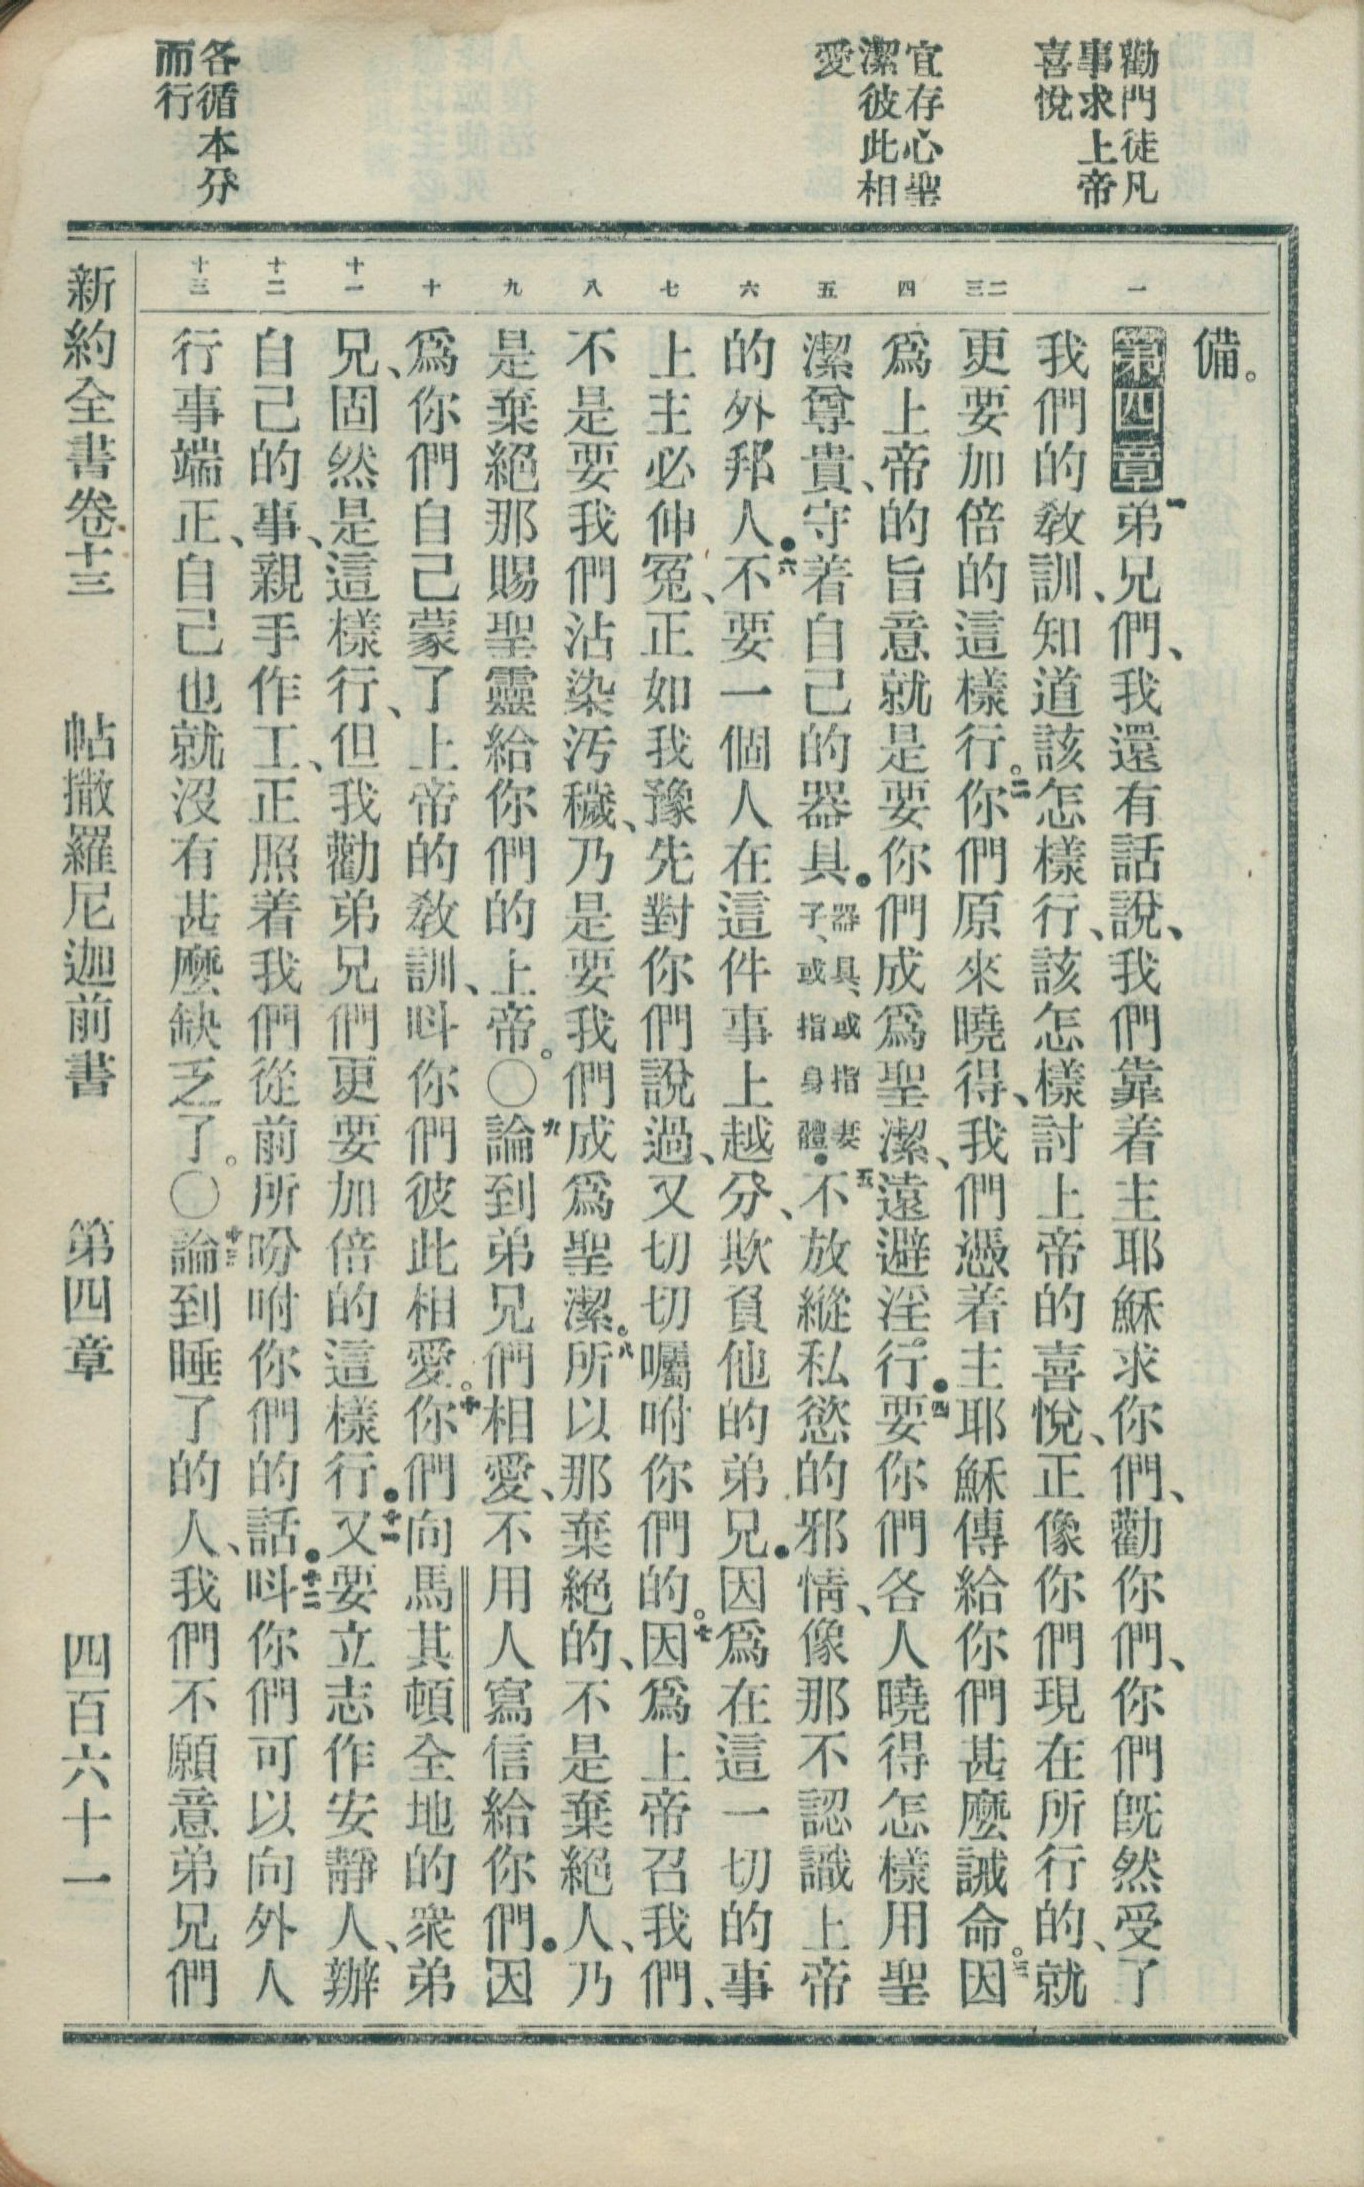 勸門徒凡
事求上帝
喜悅
宜存心聖
潔彼此相
愛
各循本分
而行
一
二三
四
五
六
七
八
九
十
十一
十二
十三
備。
第四章一弟兄們、我還有話說、我們靠着主耶穌求你們、勸你們、你們旣然受了
我們的敎訓、知道該怎樣行、該怎樣討上帝的喜悅、正像你們現在所行的、就
更要加倍的這樣行。二你們原來曉得、我們憑着主耶穌傳給你們甚麽誡命。三因
爲上帝的旨意就是要你們成爲聖潔、遠避淫行。四要你們各人曉得怎樣用聖
潔尊貴、守着自己的器具●器具、或指妻子、或指身體●五不放縱私慾的邪情、像那不認識上帝
的外邦人●六不要一個人在這件事上越分、欺負他的弟兄●因爲在這一切的事
上主必伸冤、正如我豫先對你們說過、又切切囑咐你們的。七因爲上帝召我們、
不是要我們沾染汚穢、乃是要我們成爲聖潔。八所以那棄絕的、不是棄絕人、乃
是棄絕那賜聖靈給你們的上帝。〇九論到弟兄們相愛、不用人寫信給你們●因
爲你們自己蒙了上帝的敎訓、呌你們彼此相愛。十你們向馬其頓全地的衆弟
兄、固然是這樣行、但我勸弟兄們更要加倍的這樣行●十一又要立志作安靜人、辦
自己的事、親手作工、正照着我們從前所吩咐你們的話●十二呌你們可以向外人
行事端正、自己也就沒有甚麽缺乏了。〇十三論到睡了的人、我們不願意弟兄們
新約全書卷十三 帖撒羅尼迦前書 第四章 四百六十一